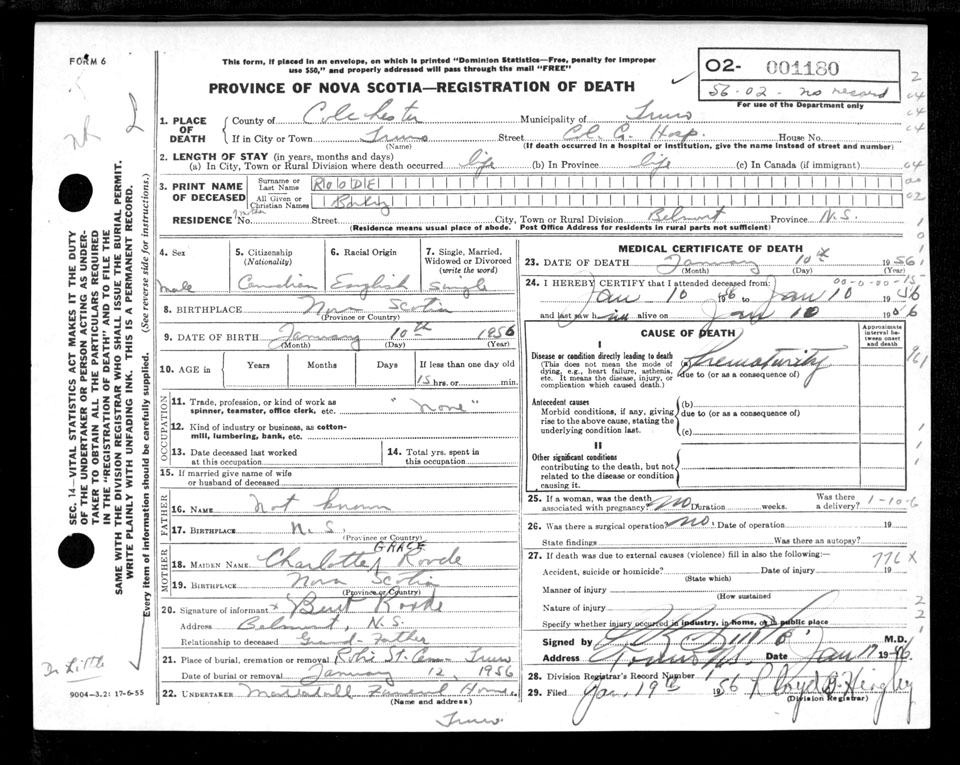 FORM 6
This form, if placed in an envelope, on which is printed "Dominion Statistics—Free, penalty for improper
use $50," and properly addressed will pass through the mail "FREE"
PROVINCE OF NOVA SCOTIA—REGISTRATION OF DEATH
O2- 001180
56-02 - no record
For use of the Department only
1. PLACE OF DEATH
County of Colchester Municipality of Truro
If in City or Town Truro Street Col. Co. Hosp. House No.
(Name) (If death occurred in a hospital or institution, give the name instead of street and number)
2. LENGTH OF STAY (in years, months and days)
(a) In City, Town or Rural Division where death occurred life (b) In Province life (c) In Canada (if immigrant)
3. PRINT NAME OF DECEASED
Surname or Last Name ROODE
All Given or Christian Names Baby
RESIDENCE No. Street City, Town or Rural Division Belmont Province N.S.
mother
(Residence means usual place of abode. Post Office Address for residents in rural parts not sufficient)
4. Sex 5. Citizenship 6. Racial Origin 7. Single, Married,
(Nationality) Widowed or Divorced
(write the word)
male Canadian English Single
8. BIRTHPLACE Nova Scotia
(Province or Country)
9. DATE OF BIRTH January 10th 1956
(Month) (Day) (Year)
10. AGE in Years Months Days If less than one day old
15 hrs. or min.
OCCUPATION
11. Trade, profession, or kind of work as
spinner, teamster, office clerk, etc. "none"
12. Kind of industry or business, as cotton-
mill, lumbering, bank, etc.
13. Date deceased last worked
at this occupation
14. Total yrs. spent in
this occupation
15. If married give name of wife
or husband of deceased
FATHER
16. NAME Not known
17. BIRTHPLACE N.S.
(Province or Country)
MOTHER
18. MAIDEN NAME Charlotte GRACE Roode
19. BIRTHPLACE Nova Scotia
(Province or Country)
20. Signature of informant x Burt Roode
Address Belmont, N.S.
Relationship to deceased Grand-Father
21. Place of burial, cremation or removal Robie St. Cem- Truro
Date of burial or removal January 12, 1956
22. UNDERTAKER Funeral Home,
(Name and address)
Truro
MEDICAL CERTIFICATE OF DEATH
23. DATE OF DEATH January 10th 1956
(Month) (Day) (Year)
24. I HEREBY CERTIFY that I attended deceased from:
00-0-00-15
Jan 10 1956 to Jan 10 1956
and last saw him alive on Jan 10 1956
CAUSE OF DEATH
Approximate interval between onset and death
I
Disease or condition directly leading to death
(This does not mean the mode of
dying, e.g., heart failure, asthenia,
etc. It means the disease, injury, or
complication which caused death.)
(a) Prematurity
due to (or as a consequence of)
Antecedent causes
Morbid conditions, if any, giving
rise to the above cause, stating the
underlying condition last.
(b)
due to (or as a consequence of)
(c)
II
Other significant conditions
contributing to the death, but not
related to the disease or condition
causing it.
25. If a woman, was the death
associated with pregnancy? No Duration weeks. Was there a delivery?
1-10-6
26. Was there a surgical operation? no. Date of operation 19
State findings Was there an autopsy?
27. If death was due to external causes (violence) fill in also the following:—
776X
Accident, suicide or homicide? Date of injury 19
(State which)
Manner of injury
(How sustained)
Nature of injury
Specify whether injury occurred in industry, in home, or in public place
Signed by M.D.
Address Truro N.S. Date Jan 17 1956
28. Division Registrar's Record Number 1
29. Filed Jan. 19th 1956 Lloyd
(Division Registrar)
SEC. 14—VITAL STATISTICS ACT MAKES IT THE DUTY
OF THE UNDERTAKER OR PERSON ACTING AS UNDER-
TAKER TO OBTAIN ALL THE PARTICULARS REQUIRED
IN THE "REGISTRATION OF DEATH" AND TO FILE THE
SAME WITH THE DIVISION REGISTRAR WHO SHALL ISSUE THE BURIAL PERMIT.
WRITE PLAINLY WITH UNFADING INK. THIS IS A PERMANENT RECORD.
Every item of information should be carefully supplied. (See reverse side for instructions.)
Dr Little
9004-3.2: 17-6-55